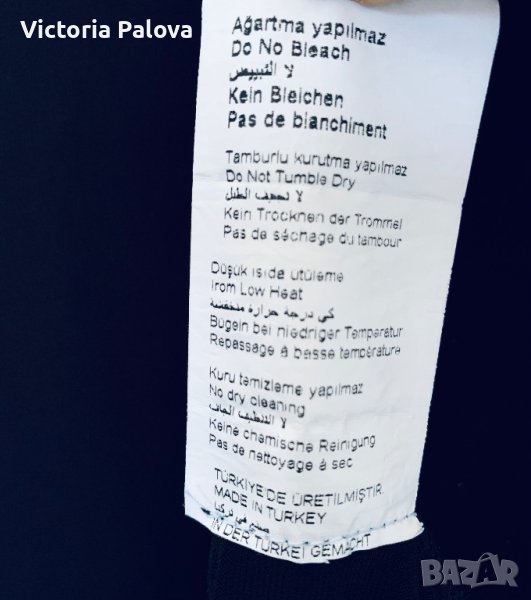 Victoria Palova
Ağartma yapılmaz
Do No Bleach
لا التبييض
Kein Bleichen
Pas de blanchiment
Tamburlu kurutma yapılmaz
Do Not Tumble Dry
لا تجفف الطبل
Kein Trocknen der Trommel
Pas de séchage du tambour
Düşük ısıda ütüleme
Irom Low Heat
كي درجة حرارة منخفضة
Bügeln bei niedriger Temperatur
Repassage à basse température
Kuru temizleme yapılmaz
No dry cleaning
لا التنظيف الجاف
Keine chemische Reinigung
Pas de nettoyage à sec
TÜRKİYE'DE ÜRETİLMİŞTİR.
MADE IN TURKEY
صنع في تركيا
IN DER TÜRKEI GEMACHT
BAZAR